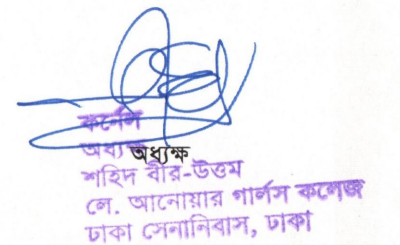 কর্নেল
অধ্যক্ষ অধ্যক্ষ
শহিদ বীর-উত্তম
লে. আনোয়ার গার্লস কলেজ
ঢাকা সেনানিবাস, ঢাকা